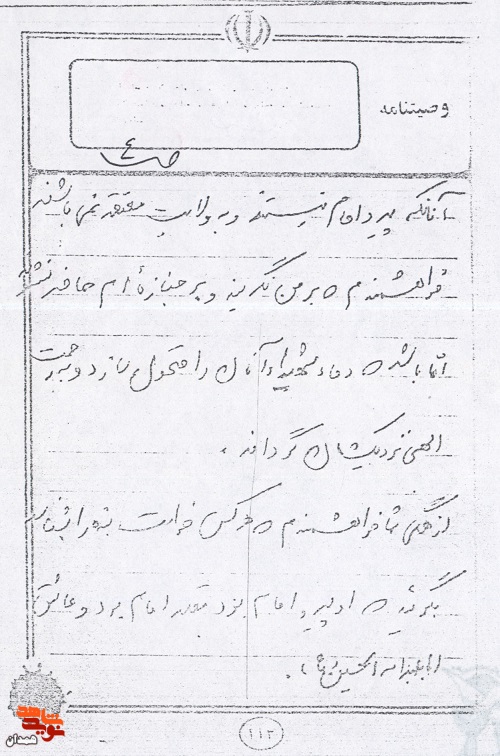 وصیتنامه
ص ٤
آنانکه پیرو امام نیستند و به ولایت معتقد نمی باشند
خواهشمندم که بر من نگریند و بر جنازه ام حاضر نشوند
امّا باشد که دعاء شهیدان را متحول سازد و به رحمت
الهی نزدیکشان گرداند.
از همگی شما خواهشمندم که هر کس خواست بنده را بشناسد
بگوئید که او پیرو امام بود مقلد امام بود و عاشق
اباعبدالله الحسین (ع).
۱۱۲
نوید شاهد
همدان